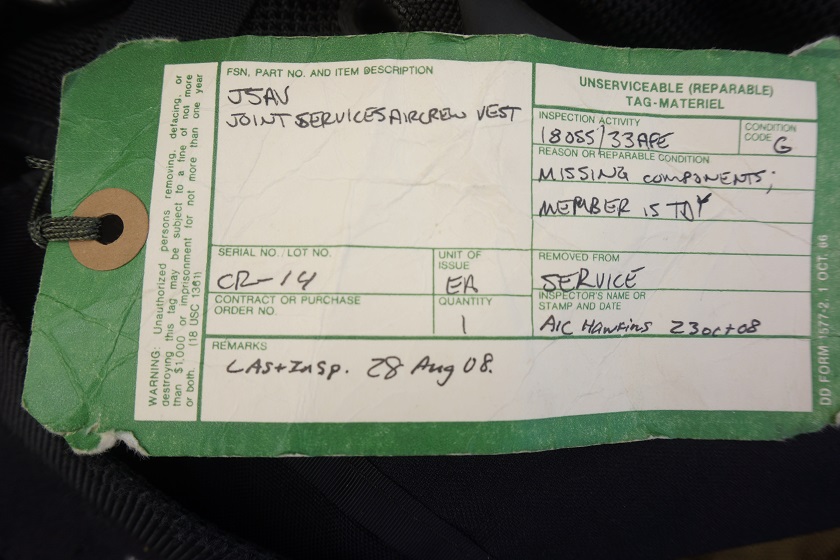 FSN, PART NO. AND ITEM DESCRIPTION
JSAV
JOINT SERVICES AIRCREW VEST
UNSERVICEABLE (REPARABLE)
TAG-MATERIEL
INSPECTION ACTIVITY
18OSS/33AFE
CONDITION
CODE
G
REASON OR REPARABLE CONDITION
MISSING COMPONENTS;
MEMBER IS TDY
SERIAL NO./LOT NO.
CR-14
UNIT OF
ISSUE
EA
REMOVED FROM
SERVICE
CONTRACT OR PURCHASE
ORDER NO.
QUANTITY
1
INSPECTOR'S NAME OR
STAMP AND DATE
A1C Hawkins 23 Oct 08
REMARKS
Last Insp. 28 Aug 08.
WARNING: Unauthorized persons removing, defacing, or
destroying this tag may be subject to a fine of not more
than $1,000 or imprisonment for not more than one year
or both. (18 USC 1361)
DD FORM 1577-2, 1 OCT. 66